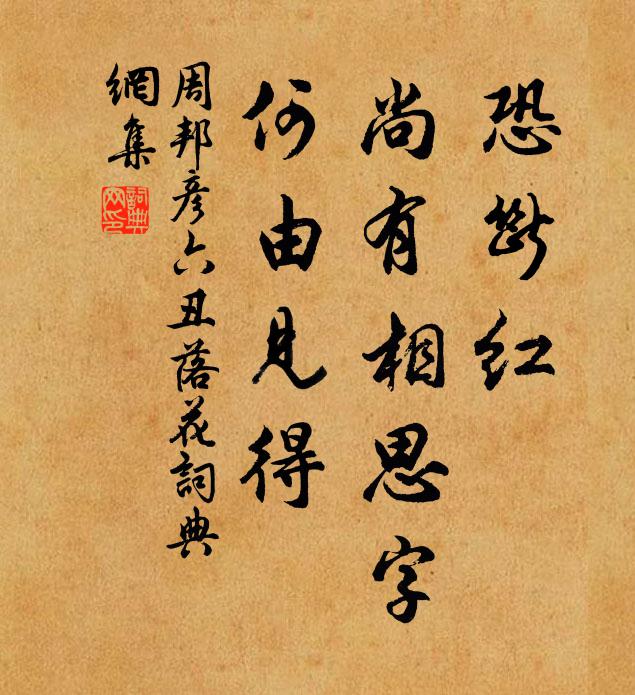 恐斷紅
尚有相思字
何由見得
周邦彦六丑落花詞典
網集
詞典
网印